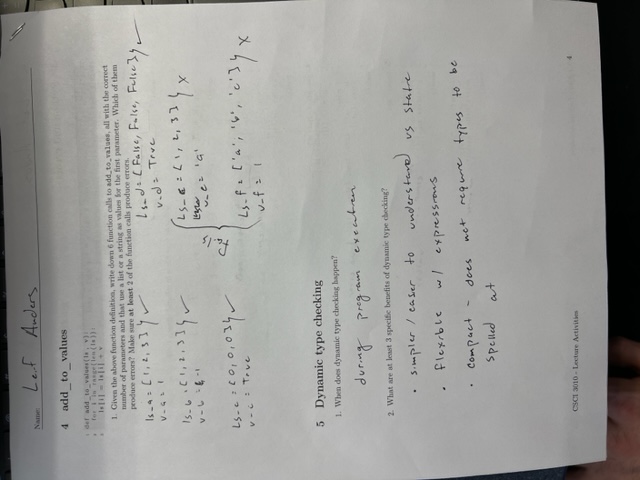 Name: Leif Anders
4 add_to_values
1 def add_to_values(ls, v):
2 for i in range(len(ls)):
3 ls[i] = ls[i] + v
1. Given the above function definition, write down 6 function calls to add_to_values, all with the correct
number of parameters and that use a list or a string as values for the first parameter. Which of them
produce errors? Make sure at least 2 of the function calls produce errors.
ls_a = [1, 2, 3] ✓
v_a = 1
ls_b = [1, 2, 3] ✓
v_b = -1
Ls_c = [0, 0, 0] ✓
v_c = True
Ls_d = [False, False, False] ✓
v_d = True
Fails
Ls_e = [1, 2, 3] x
v_e = 'a'
Ls_f = ['a', 'b', 'c'] x
v_f = 1
5 Dynamic type checking
1. When does dynamic type checking happen?
during program execution
2. What are at least 3 specific benefits of dynamic type checking?
• simpler / easer to understand vs static
• flexible w/ expressions
• compact - does not require types to be
spelled at
CSCI 3010 - Lecture Activities
4